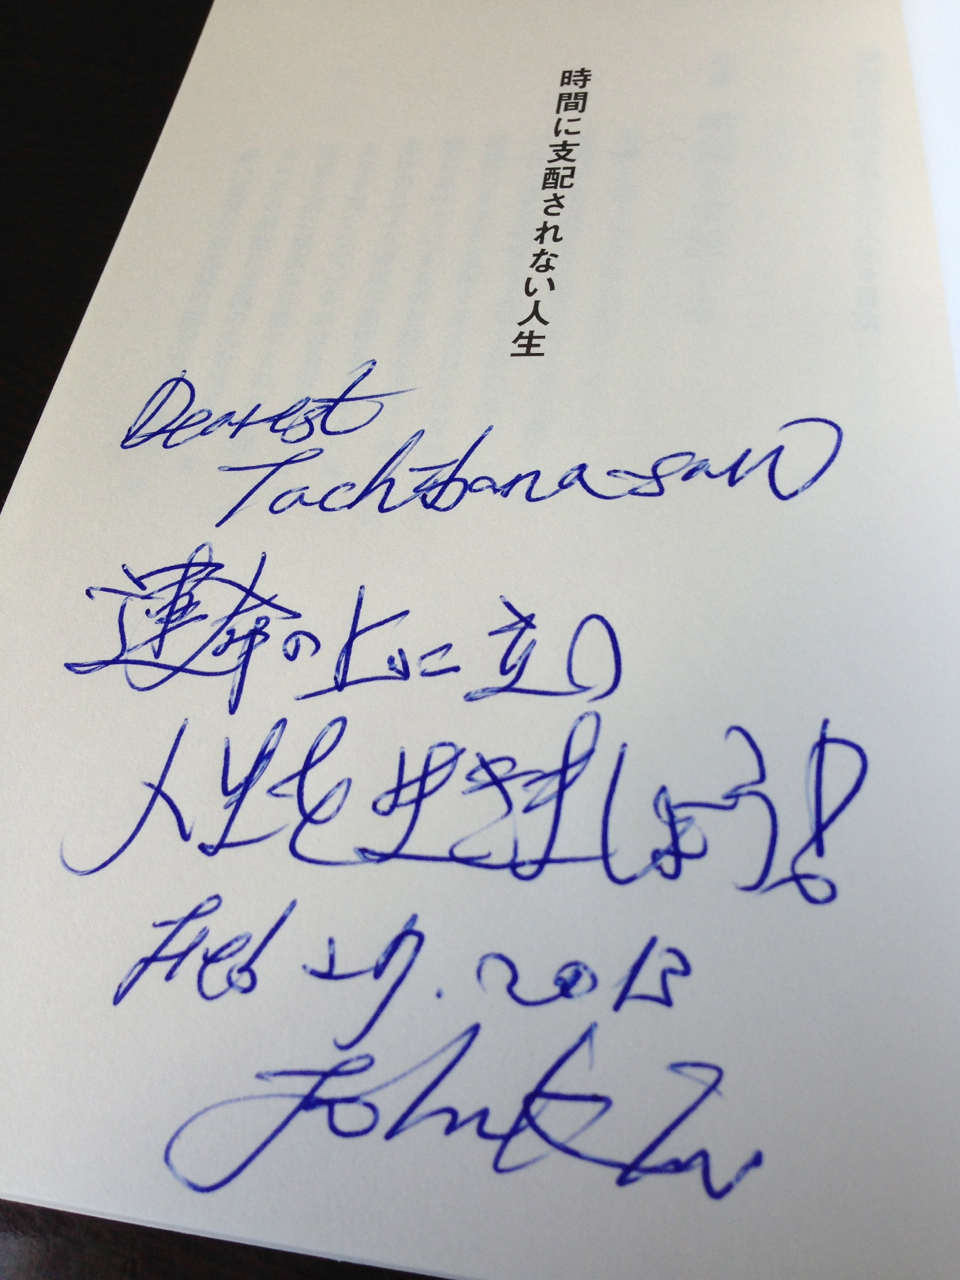 時間に支配されない人生
Dearest
Tachibana-san
運命の上に立り
人生を生きましょう!
Feb 27. 2013
John Kim